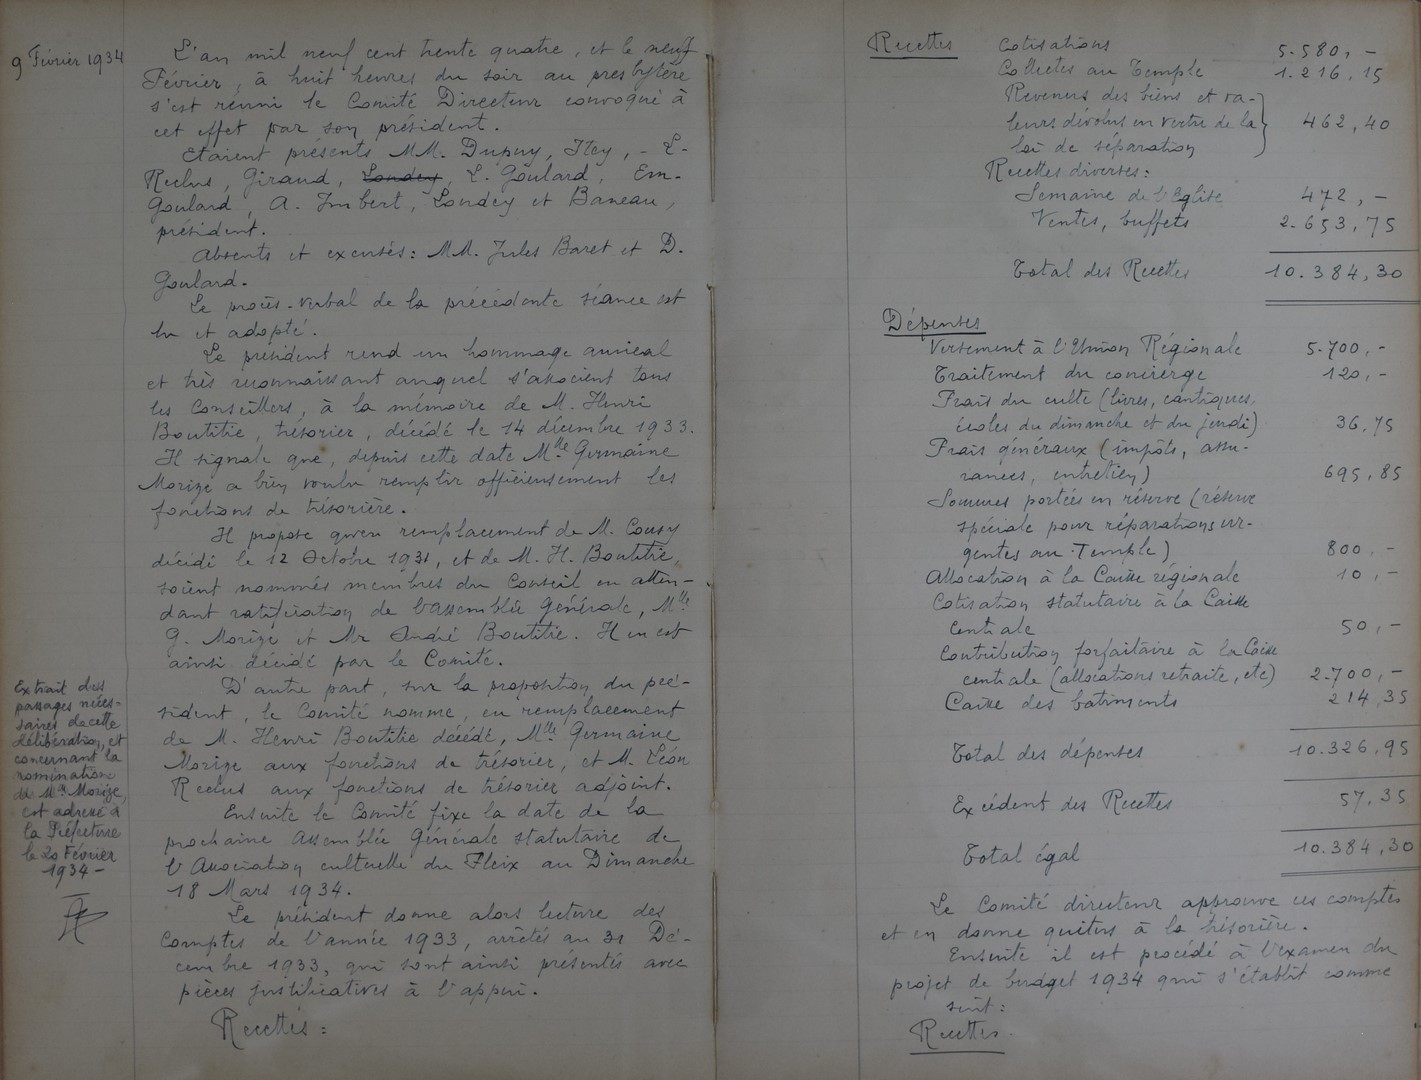 9 Février 1934
L'an mil neuf cent trente quatre, et le neuf
Février, à huit heures du soir au presbytère
s'est réuni le Comité Directeur convoqué à
cet effet par son président.
Etaient présents MM. Dupuy, Itey, - E.
Reclus, Giraud, Londey, E. Goulard, Em-
Goulard, A. Imbert, Londey et Baneau,
président.
Absents et excusés: MM. Jules Baret et D.
Goulard.
Le procès-verbal de la précédente séance est
lu et adopté.
Le président rend un hommage amical
et très reconnaissant auquel s'associent tous
les Conseillers, à la mémoire de M. Henri
Boutitie, trésorier, décédé le 14 décembre 1933.
Il signale que, depuis cette date Mlle Germaine
Morize a bien voulu remplir officieusement les
fonctions de trésorière.
Il propose qu'en remplacement de M. Cousy
décédé le 12 Octobre 1931, et de M. H. Boutitie,
soient nommés membres du Conseil en atten-
dant ratification de l'assemblée Générale, Mlle
G. Morize et Mr André Boutitie. Il en est
ainsi décidé par le Comité.
D'autre part, sur la proposition du pré-
sident, le Comité nomme, en remplacement
de M. Henri Boutitie décédé, Mlle Germaine
Morize aux fonctions de trésorier, et M. Léon
Reclus aux fonctions de trésorier adjoint.
Ensuite le Comité fixe la date de la
prochaine Assemblée Générale statutaire de
l'Association cultuelle du Fleix au Dimanche
18 Mars 1934.
Le président donne alors lecture des
Comptes de l'année 1933, arrêtés au 31 Dé-
cembre 1933, qui sont ainsi présentés avec
pièces justificatives à l'appui.
Recettes:
Extrait des
passages néces-
saires de cette
délibération, et
concernant la
nomination
de Mlle Morize,
est adressé à
la Préfecture
le 20 Février
1934 -
Recettes Cotisations 5.580, -
Collectes au Temple 1.216,15
Revenus des biens et va-
leurs dévolus en vertu de la 462,40
loi de séparation
Recettes diverses:
Semaine de l'Eglise 472, -
Ventes, buffets 2.653,75
Total des Recettes 10.384,30
Dépenses
Versement à l'Union Régionale 5.700, -
Traitement du concierge 120, -
Frais du culte (livres, cantiques,
écoles du dimanche et du jeudi) 36,75
Frais généraux (impôts, assu-
rances, entretien) 695,85
Sommes portées en réserve (réserve
spéciale pour réparations ur-
gentes au Temple) 800, -
Allocation à la Caisse régionale 10, -
Cotisation statutaire à la Caisse
centrale 50, -
Contribution forfaitaire à la Caisse
centrale (allocations retraite, etc) 2.700, -
Caisse des bâtiments 214,35
Total des dépenses 10.326,95
Excédent des Recettes 57,35
Total égal 10.384,30
Le Comité directeur approuve ces comptes
et en donne quitus à la trésorière.
Ensuite il est procédé à l'examen du
projet de budget 1934 qui s'établit comme
suit:
Recettes.